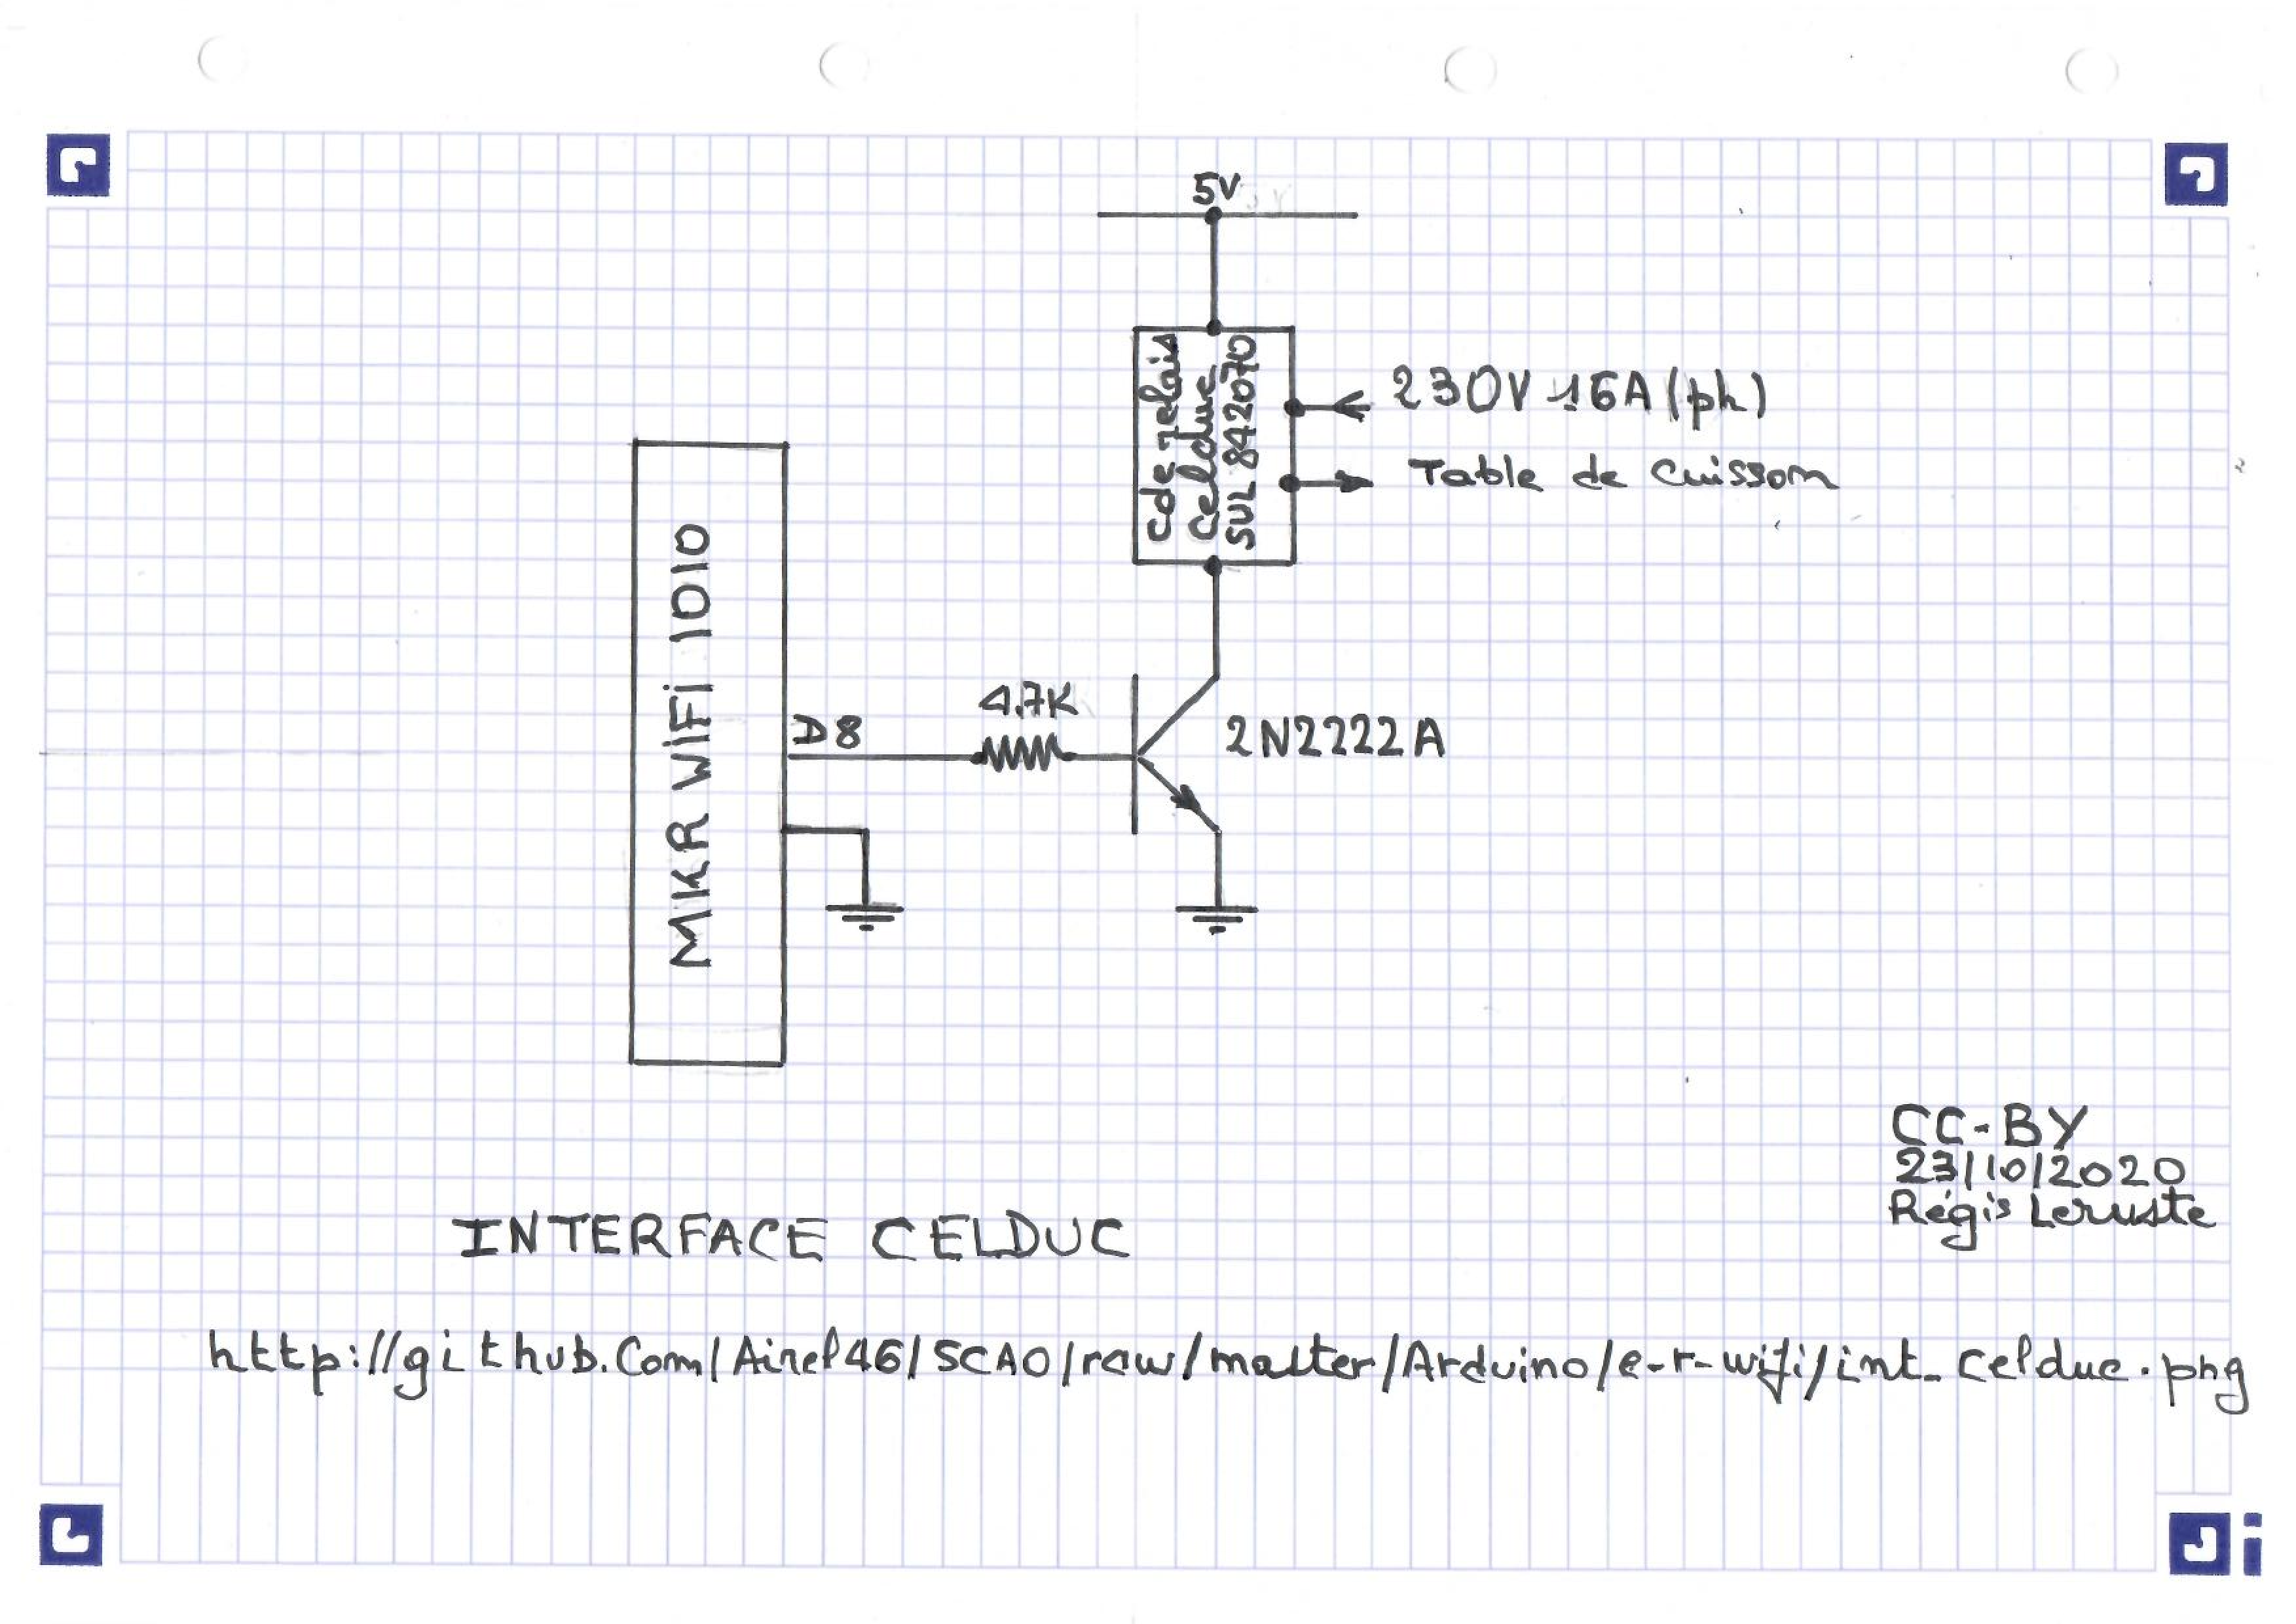 5V
Cde relais
Celduc
SUL 842070
230V 16A (ph)
Table de Cuisson
MKR WiFi 1010
D8
4.7K
2N2222A
CC-BY
23/10/2020
Régis Leruste
INTERFACE CELDUC
http://github.com/Airel46/SCAO/raw/master/Arduino/e-r-wifi/int_celduc.png